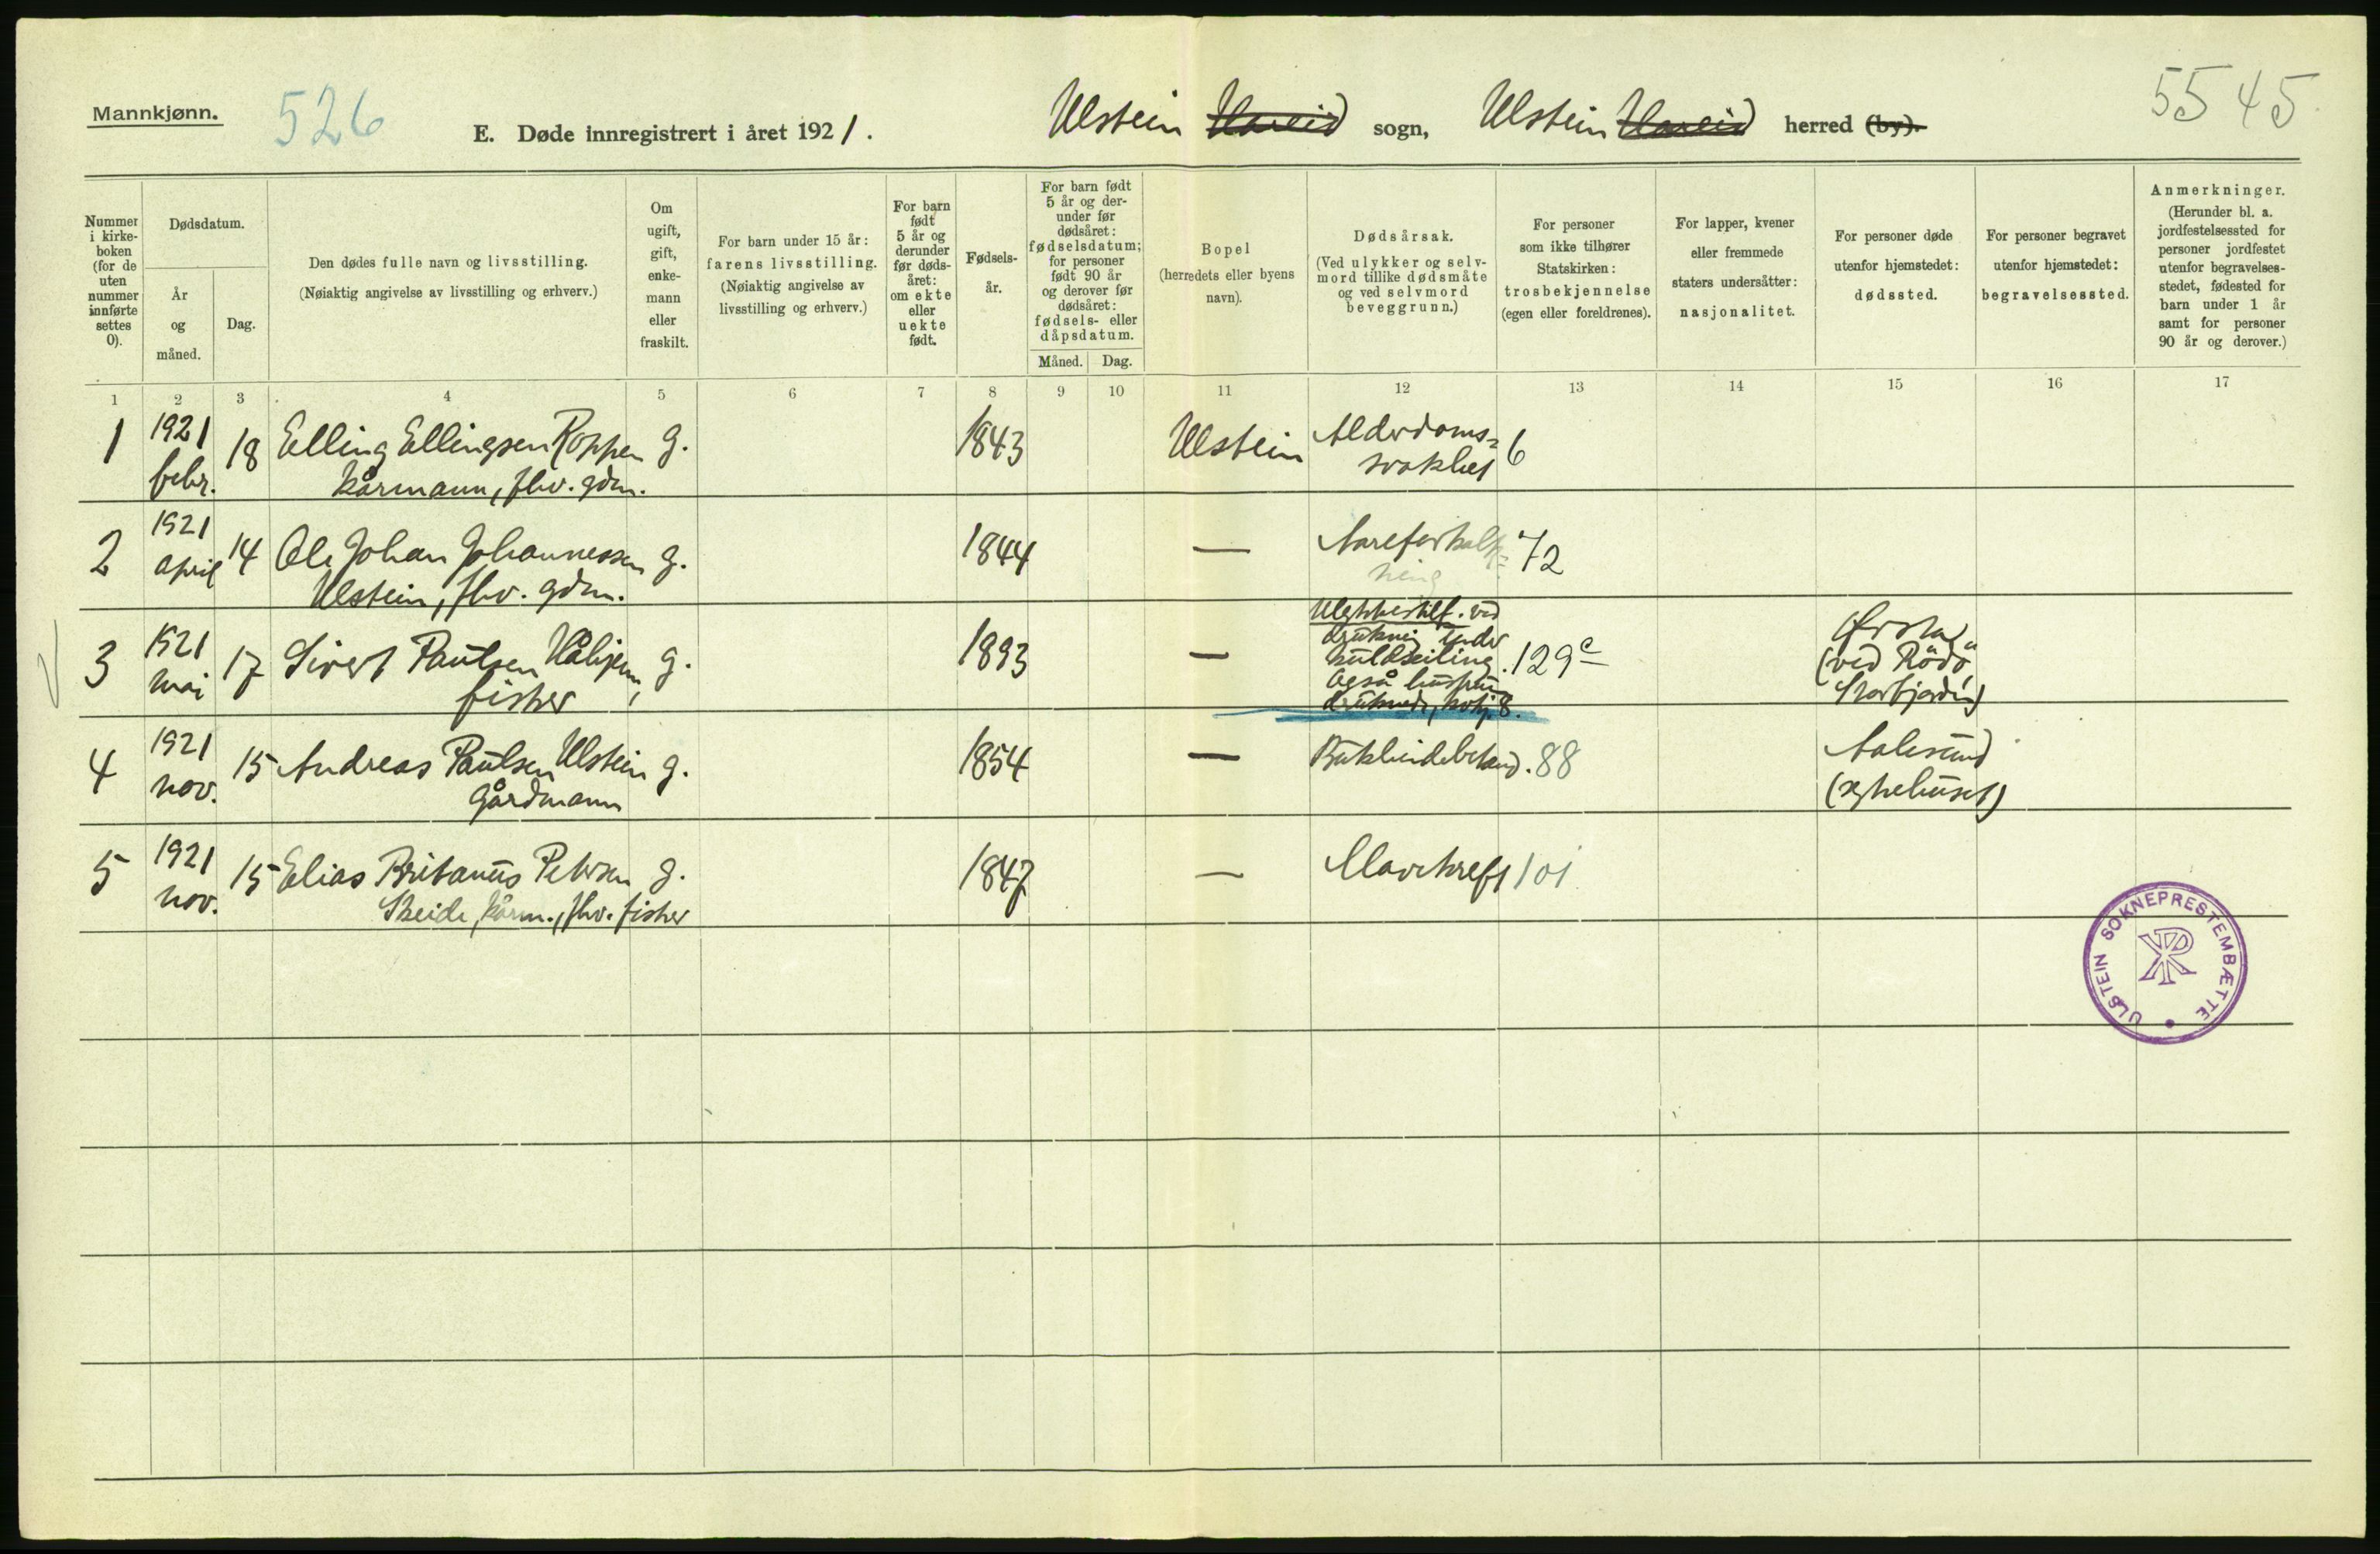 Mannkjønn.
526
E. Døde innregistrert i året 1921.
Ulstein Hareid sogn, Ulstein Hareid herred (by).
5545
Nummer i kirke-boken (for de uten nummer innførte settes 0).
Dødsdatum.
År og måned.
Dag.
Den dødes fulle navn og livsstilling.
(Nøiaktig angivelse av livsstilling og erhverv.)
Om ugift, gift, enke-mann eller fraskilt.
For barn under 15 år: farens livsstilling.
(Nøiaktig angivelse av livsstilling og erhverv.)
For barn født 5 år og derunder før døds-året: om ekte eller uekte født.
Fødsels-år.
For barn født 5 år og der-under før dødsåret: fødselsdatum; for personer født 90 år og derover før dødsåret: fødsels- eller dåpsdatum.
Måned.
Dag.
Bopel
(herredets eller byens navn).
Dødsårsak.
(Ved ulykker og selv-mord tillike dødsmåte og ved selvmord beveggrunn.)
For personer som ikke tilhører Statskirken: trosbekjennelse (egen eller foreldrenes).
For lapper, kvener eller fremmede staters undersåtter: nasjonalitet.
For personer døde utenfor hjemstedet: dødssted.
For personer begravet utenfor hjemstedet: begravelsessted.
Anmerkninger.
(Herunder bl. a. jordfestelsessted for personer jordfestet utenfor begravelses-stedet, fødested for barn under 1 år samt for personer 90 år og derover.)
1 2 3 4 5 6 7 8 9 10 11 12 13 14 15 16 17
1 1921 febr. 18 Elling Ellingsen Roppen g. 1843 Ulstein Alderdoms=svakhet 6
kårmann, fhv. gdm.
2 1921 april 14 Ole Johan Johannessen g. 1844 — Åreforkalk=ning 72
Ulstein, fhv. gdm.
3 1921 mai 17 Sivert Paulsen Håhjem, g. 1893 —
fisker
Ulykkestilf. ved
drukning under
kuldseiling. 129c
Også hustru
druknede, kvkj. 8.
Ørsta
(ved "Rödö"
Storfjorden)
4 1921 nov. 15 Andreas Paulsen Ulstein g. 1854 — Bukhindebetend. 88
gårdmann
Aalesund
(sykehuset)
5 1921 nov. 15 Elias Britanus Petersen g. 1847 — Mavekreft 101
Skeide, kårm., fhv. fisker
ULSTEIN SOKNEPRESTEMBÆTTE